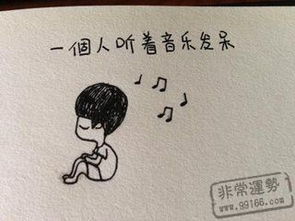 一個人听着音乐发呆
非常運勢
www.99166.com